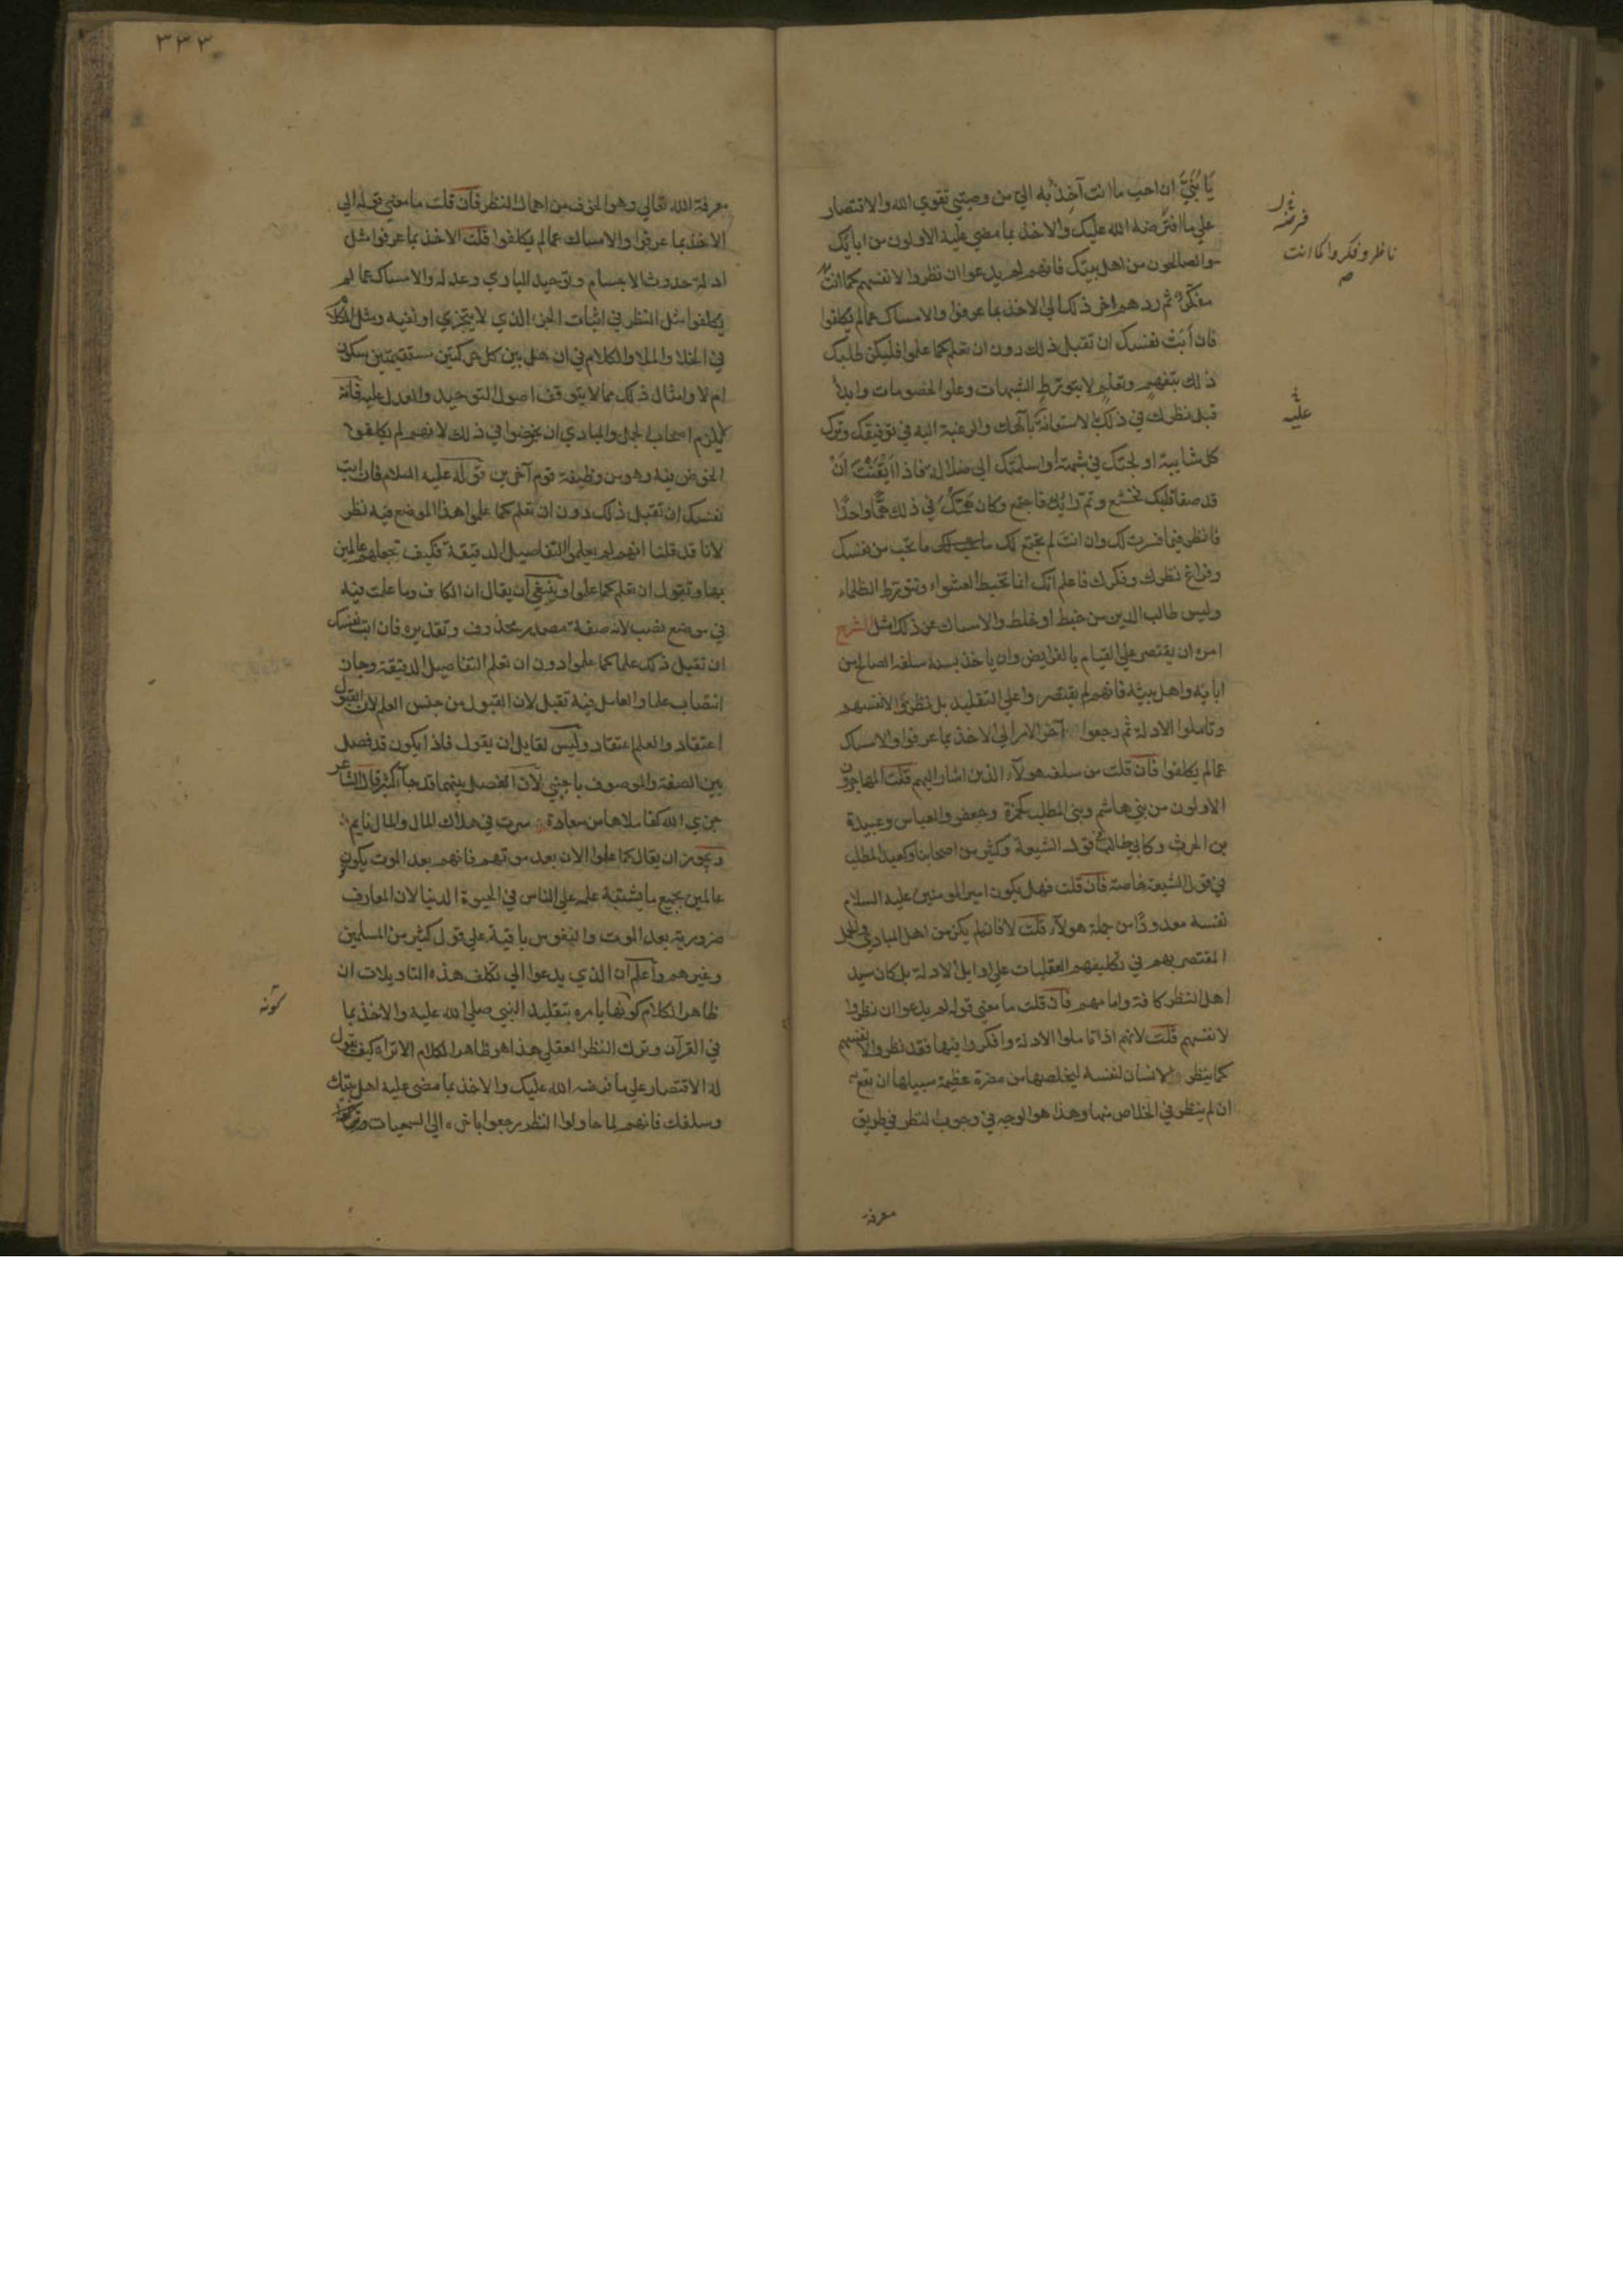 يَا بُنَيَّ ان احب ما انت آخِذ به اليّ من وصيتي تقوي الله والاقتصار
علي ما افترضه الله عليك والاخذ بما مضي عليه الاولون من ابائك
والصالحون من اهل بيتك فانهم لم يدعوا ان نظروا لانفسهم كما انت
مفكر ثم ردهم اخر ذلك الي الاخذ بما عرفوا والامساك عما لم يكلفوا
فان اَبَتْ نفسك ان تقبل ذلك دون ان تعلم كما علموا فليكن طلبك
ذلك بتفهم وتعلم لا بتورط الشبهات وعلو الخصومات وابدأ
قبل نظرك في ذلك بالاستعانة بآلهك والرغبة اليه في توفيقك وترك
كل شايبة اولجتك في شبهة او اسلمتك الي ضلالة فاذا اَيْقَنْتَ اَنْ
قد صفا قلبك فخشع وتم رَايُكَ فاجتمع وكان هَمُّكَ في ذلك هَمًّا واحدًا
فانظر فيما فسرت لك وان انت لم يجتمع لك ما تحب من نفسك
وفراغ نظرك وفكرك فاعلم انك انما تخبط العشواء وتتورط الظلماء
وليس طالب الدين من خبط او خلط والامساك عن ذلك امثل الشرح
امره ان يقتصر علي القيام بالفرايض وان ياخذ بسنة سلفه الصالح من
ابايه واهل بيته فانهم لم يقتصروا علي التقليد بل نظروا لانفسهم
وتاملوا الادلة ثم رجعوا آخر الامر الي الاخذ بما عرفوا والامساك
عما لم يكلفوا فان قلت من سلفه هولاء الذين اشار اليهم قلت المهاجرون
الاولون من بني هاشم وبني المطلب كحمزة وجعفر والعباس وعبيدة
بن الحرث وكابي طالب في قول الشيعة وكثير من اصحابنا وكعبد المطلب
في قول الشيعة خاصة فان قلت فهل يكون امير المومنين عليه السلام
نفسه معدودًا من جملة هولاء قلت لا فانه لم يكن من اهل المبادي والجمل
المقتصر بهم في تكليفهم العقليات علي اوايل الادلة بل كان سيد
اهل النظر كافة وامامهم فان قلت ما معني قوله لم يدعوا ان نظروا
لانفسهم قلت لانهم اذا تاملوا الادلة وافكروا فيها فقد نظروا لانفسهم
كما ينظر الانسان لنفسه ليخلصها من مضرة عظيمة سبيلها ان تقع به
ان لم ينظر في الخلاص منها وهذا هو الوجه في وجوب النظر في طريق
معرفة
فرضه
ناظر وفكروا كما انت
عليه
٣٣٣
معرفة الله تعالي وهو الخوف من اهمال النظر فان قلت ما معني قوله الي
الاخذ بما عرفوا والامساك عما لم يكلفوا قلت الاخذ بما عرفوا مثل
ادلة حدوث الاجسام وتوحيد الباري وعدله والامساك عما لم
يكلفوا مثل النظر في اثبات الجزء الذي لا يتجزي او نفيه ومثل الكلام
في الخلا والملا والكلام في ان هل بين كل حركتين مستقيمتين سكون
ام لا وامثال ذلك مما لا يتوقف اصول التوحيد والعدل عليه فانه
لا يلزم اصحاب الجمل والمبادي ان يخوضوا في ذلك لانهم لم يكلفوا
الخوض فيه وهو من وظيفة قوم آخرين قوله عليه السلام فان ابت
نفسك ان تقبل ذلك دون ان تعلم كما علموا هذا الموضع فيه نظر
لانا قد قلنا انهم لم يعلموا التفاصيل الدقيقة فكيف تجعلهم عالمين
بها وتقول ان تعلم كما علموا وينبغي ان يقال ان الكاف وما عملت فيه
في موضع نصب لانه صفة مصدر محذوف وتقديره فان ابت نفسك
ان تقبل ذلك علما كما علموا دون ان تعلم التفاصيل الدقيقة وجاز
انتصاب علما والعامل فيه تقبل لان القبول من جنس العلم لان القبول
اعتقاد والعلم اعتقاد وليس لقايل ان يقول فاذا يكون قد فصل
بين الصفة والموصوف باجنبي لان الفصل بينهما قد جاء كثير قال الشاعر
جزي الله كفا ملاها من سعادة سرت في هلاك المال والمال نايم
ويجوز ان يقال كما علموا الان بعد موتهم فانهم بعد الموت يكونون
عالمين بجميع ما يشتبه علمه علي الناس في الحيوة الدنيا لان المعارف
ضرورية بعد الموت والنفوس باقية علي قول كثير من المسلمين
وغيرهم واعلم ان الذي يدعوا الي تكلف هذه التاويلات ان
ظاهر الكلام كونها يامره بتقليد النبي صلي الله عليه والاخذ بما
في القرآن وترك النظر العقلي هذا هو ظاهر الكلام الا تراه كيف يقول
له الاقتصار علي ما فرضه الله عليك والاخذ بما مضي عليه اهل بيتك
وسلفك فانهم لما حاولوا النظر رجعوا باخره الي السمعيات وتركوا
كونه